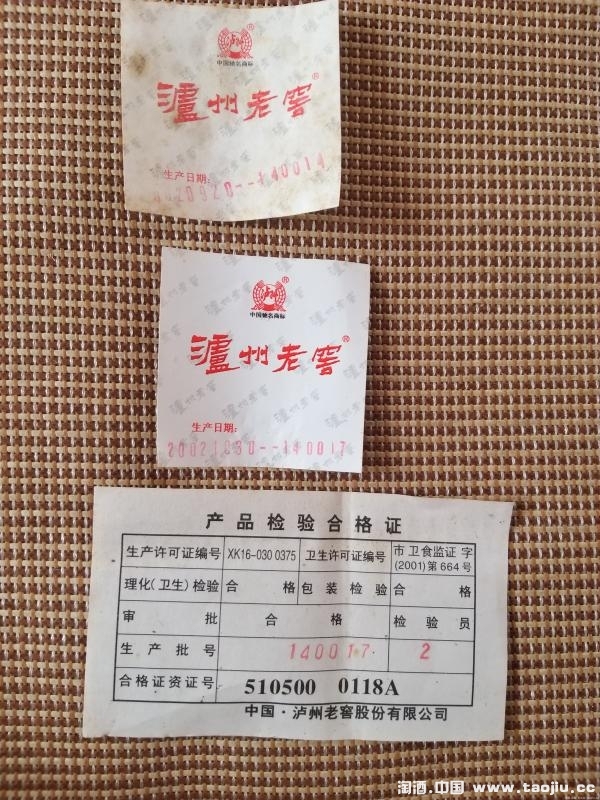 ®
中国驰名商标
泸州老窖®
生产日期:
20020920--140014
®
中国驰名商标
泸州老窖®
生产日期:
20021030--140017
产品检验合格证
生产许可证编号 XK16-030 0375 卫生许可证编号 市卫食监证字(2001)第664号
理化(卫生)检验 合格 包装检验 合格
审批 合格 检验员
生产批号 140017 2
合格证资证号 510500 0118A
中国·泸州老窖股份有限公司
淘酒.中国 www.taojiu.cc